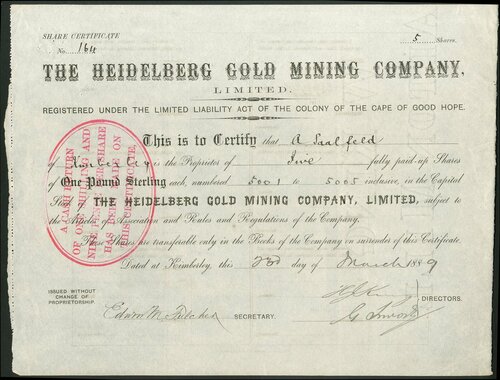 SHARE CERTIFICATE
No. 164
5 Shares.
THE HEIDELBERG GOLD MINING COMPANY,
LIMITED.
REGISTERED UNDER THE LIMITED LIABILITY ACT OF THE COLONY OF THE CAPE OF GOOD HOPE.
This is to Certify that A Saalfeld
of Kimberley is the Proprietor of Five fully paid-up Shares
of One Pound Sterling each, numbered 5001 to 5005 inclusive, in the Capital
Stock of THE HEIDELBERG GOLD MINING COMPANY, LIMITED, subject to
the Articles of Association and Rules and Regulations of the Company.
These Shares are transferable only in the Books of the Company on surrender of this Certificate.
Dated at Kimberley, this 23rd day of March 1889
ISSUED WITHOUT
CHANGE OF
PROPRIETORSHIP.
SECRETARY.
DIRECTORS.
A CASH RETURN
OF ONE SHILLING AND
PER SHARE
HAS BEEN PAID ON
THIS CERTIFICATE.